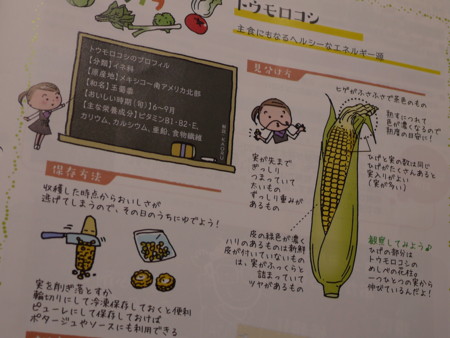 トウモロコシ
主食にもなるヘルシーなエネルギー源
トウモロコシのプロフィル
【分類】イネ科
【原産地】メキシコ〜南アメリカ北部
【和名】玉蜀黍
【おいしい時期(旬)】6〜9月
【主な栄養成分】ビタミンB1・B2・E、
カリウム、カルシウム、亜鉛、食物繊維
保存方法
収穫した時点からおいしさが
逃げてしまうので、その日のうちにゆでよう!
実を削ぎ落とすか
輪切りにして冷凍保存しておくと便利
ピューレにして保存しておけば
ポタージュやソースにも利用できる
見分け方
ヒゲがふさふさで茶色のもの
熟すにつれて
色が濃くなるので
熟度の目安に!
ひげと実の数は同じ
ひげがたくさんあると
実入りがよい
(実が多い)
実が先まで
ぎっしり
つまっていて
かたいもの
ずっしり重みが
あるもの
皮の緑色が濃く
ハリのあるものは新鮮
皮が付いていないもの
は、実がふっくらと
詰まっていて
ツヤがあるもの
観察してみよう♪
ひげの部分は
トウモロコシの
めしべの花柱。
一つひとつの実から
伸びているんだよ!